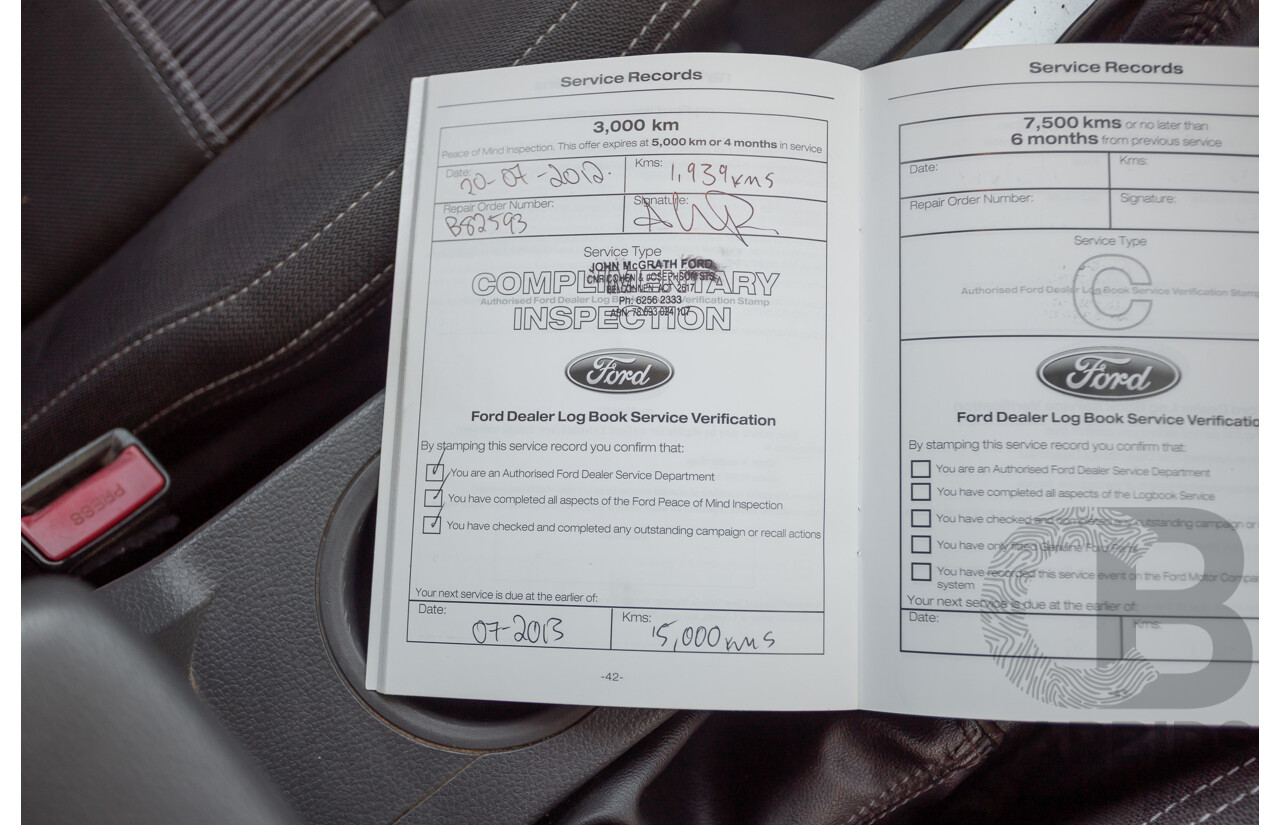 Service Records
3,000 km
Peace of Mind Inspection. This offer expires at 5,000 km or 4 months in service
Date: 20-07-2012.
Kms: 1,939 kms
Repair Order Number: B82593
Signature:
Service Type
JOHN McGRATH FORD
CNR COHEN & JOSEPHSON STS
BELCONNEN ACT 2617
Ph: 6256 2333
COMPLIMENTARY
Authorised Ford Dealer Log Book Service Verification Stamp
INSPECTION
Ford
Ford Dealer Log Book Service Verification
By stamping this service record you confirm that:
You are an Authorised Ford Dealer Service Department
You have completed all aspects of the Ford Peace of Mind Inspection
You have checked and completed any outstanding campaign or recall actions
Your next service is due at the earlier of:
Date: 07-2013
Kms: 15,000 kms
-42-
Service Records
7,500 kms or no later than
6 months from previous service
Date:
Kms:
Repair Order Number:
Signature:
Service Type
C
Authorised Ford Dealer Log Book Service Verification Stamp
Ford
Ford Dealer Log Book Service Verificatio
By stamping this service record you confirm that:
You are an Authorised Ford Dealer Service Department
You have completed all aspects of the Logbook Service
You have checked and completed any outstanding campaign or
You have only fitted Genuine Ford Parts
You have recorded this service event on the Ford Motor Compa
system
Your next service is due at the earlier of:
Date:
Kms:
PRESS
CB